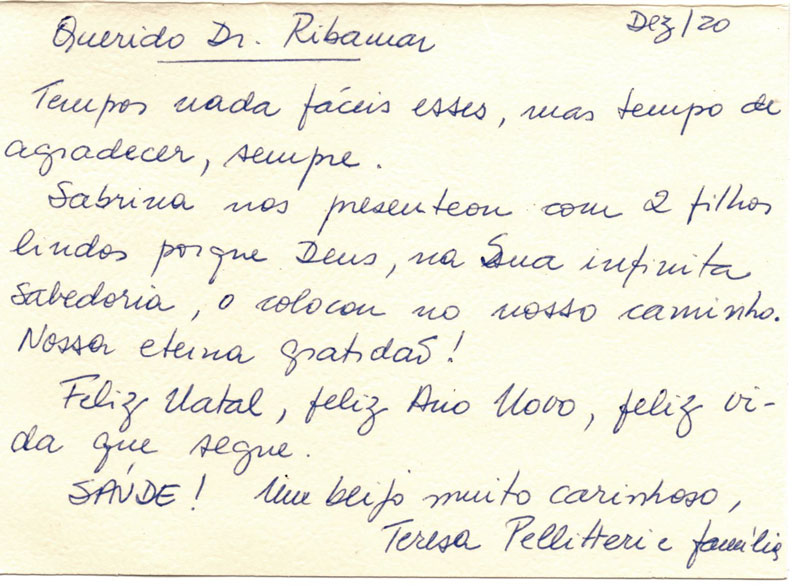 Dez/20
Querido Dr. Ribamar
Tempos nada fáceis esses, mas tempo de
agradecer, sempre.
Sabrina nos presenteou com 2 filhos
lindos porque Deus, na Sua infinita
Sabedoria, o colocou no nosso caminho.
Nossa eterna gratidão!
Feliz Natal, feliz Ano Novo, feliz vi-
da que segue.
SAÚDE! Um beijo muito carinhoso,
Teresa Pellitteri e família